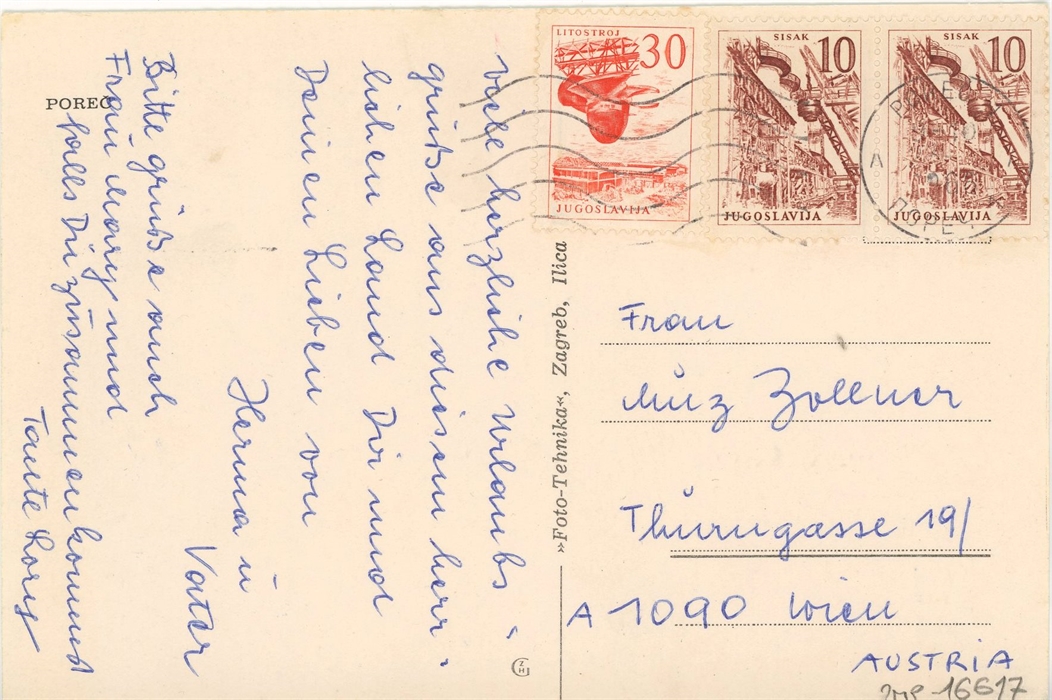 POREČ
LITOSTROJ
30
JUGOSLAVIJA
SISAK
10
JUGOSLAVIJA
SISAK
10
JUGOSLAVIJA
viele herzliche Urlaubs-
grüße aus diesem herr-
lichen Land Dir und
Deinen Lieben von
Herma u
Vater
Bitte grüße auch
Frau Mary und
falls Du zusammenkommst
Tante Lory
»Foto-Tehnika«, Zagreb, Ilica
ZH
Frau
Zollner
Thurngasse 19/
A 1090 Wien
AUSTRIA
16617